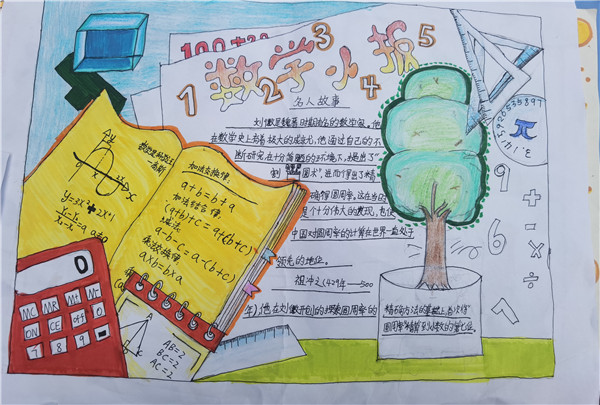 100+30
数学小报
1
2
3
4
5
名人故事
刘徽是魏晋时期著名的数学家。他
在数学史上有着极大的成就
他通过自己的不
断研究,在十分简陋的环境下,提出了“
割圆术”,
确错圆周率,这在当时
是个十分伟大的发现,也使
中国对圆周率的计算在世界一直处于
领先的地位。
祖冲之(429年—500
年),他在刘徽开创的探索圆周率的
精确方法的基础上,首次将“
圆周率”精算到小数的第七位。
加法交换律:
a+b=b+a
加法结合律:
(a+b)+c=a+(b+c)
减法:
a-b-c=a-(b+c)
乘法交换律:
a×b=b×a
AB=2
BC=2
AC=2
0
MC MR M+
ON CE
7 8 9
π
9
6
7
+
-
×
÷